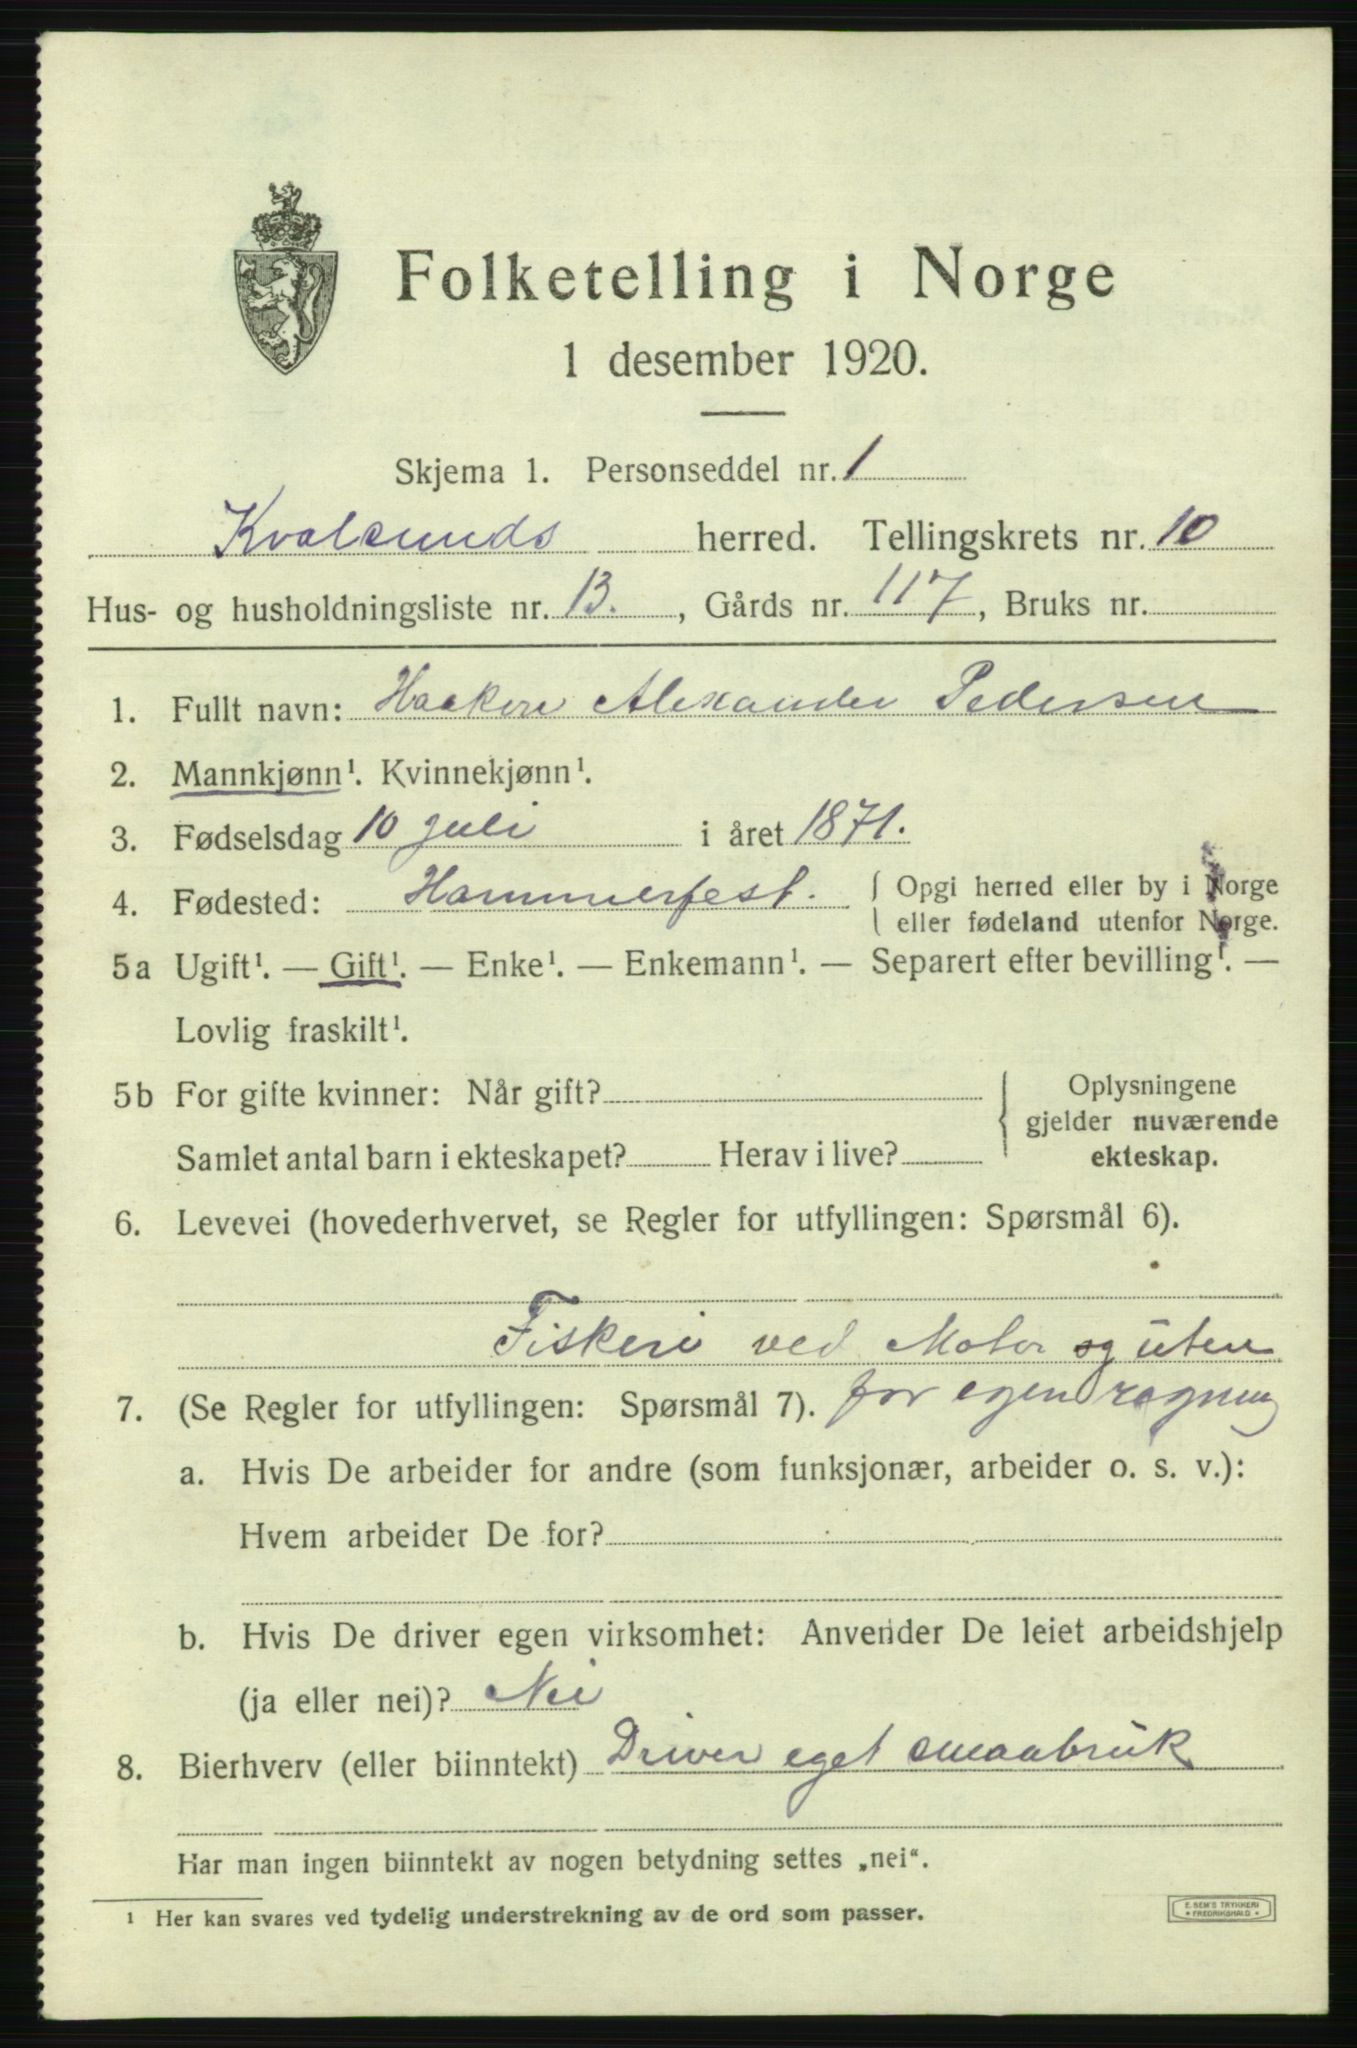 Folketelling i Norge
1 desember 1920.
Skjema 1. Personseddel nr. 1
Kvalsunds herred. Tellingskrets nr. 10
Hus- og husholdningsliste nr. 13. , Gårds nr. 117, Bruks nr.
1. Fullt navn: Haakon Alexander Pedersen
2. Mannkjønn¹. Kvinnekjønn¹.
3. Fødselsdag 10 juli i året 1871.
4. Fødested: Hammerfest. Opgi herred eller by i Norge
eller fødeland utenfor Norge.
5a Ugift¹. — Gift¹. — Enke¹. — Enkemann¹. — Separert efter bevilling¹. —
Lovlig fraskilt¹.
5b For gifte kvinner: Når gift?
Samlet antal barn i ekteskapet? Herav i live?
Oplysningene
gjelder nuværende
ekteskap.
6. Levevei (hovederhvervet, se Regler for utfyllingen: Spørsmål 6).
Fiskeri ved Motor og uten
7. (Se Regler for utfyllingen: Spørsmål 7). for egen regning
a. Hvis De arbeider for andre (som funksjonær, arbeider o. s. v.):
Hvem arbeider De for?
b. Hvis De driver egen virksomhet: Anvender De leiet arbeidshjelp
(ja eller nei)? Nei
8. Bierhverv (eller biinntekt) Driver eget smaabruk
Har man ingen biinntekt av nogen betydning settes „nei“.
¹ Her kan svares ved tydelig understrekning av de ord som passer.
E. SEM'S TRYKKERI
* FREDRIKSHALD *